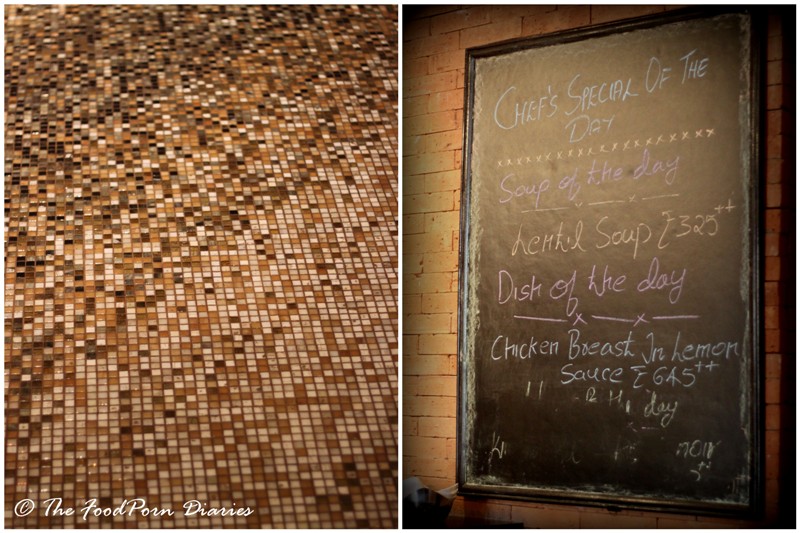 Chef's Special Of The
Day
xxxxxxxxxxxxxxxxxx
Soup of the day
Lentil Soup ₹325++
Dish of the day
Chicken Breast In Lemon
Sauce ₹645++
day
© The FoodPorn Diaries